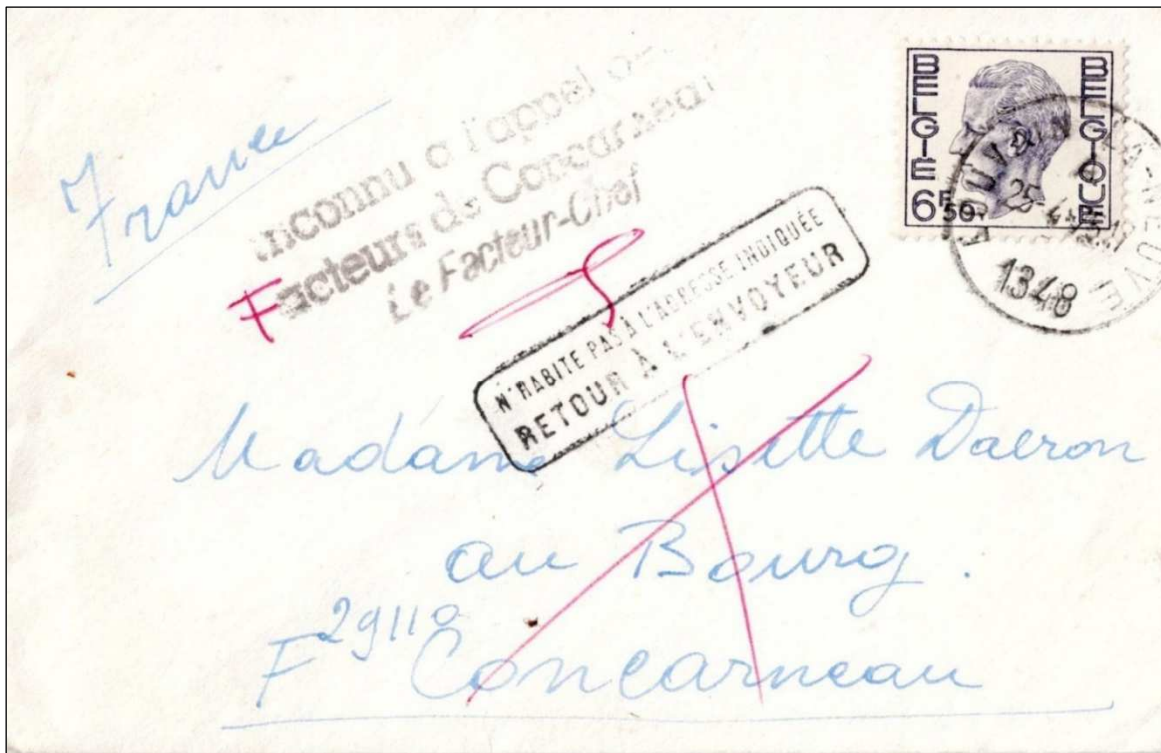 France
Inconnu a l'appel
Facteurs de Concarneau
Le Facteur-Chef
N'HABITE PAS À L'ADRESSE INDIQUÉE
RETOUR À L'ENVOYEUR
BELGIE
BELGIQUE
6F50
25-4
1348
Madame Lisette Daeron
au Bourg.
29110
F Concarneau